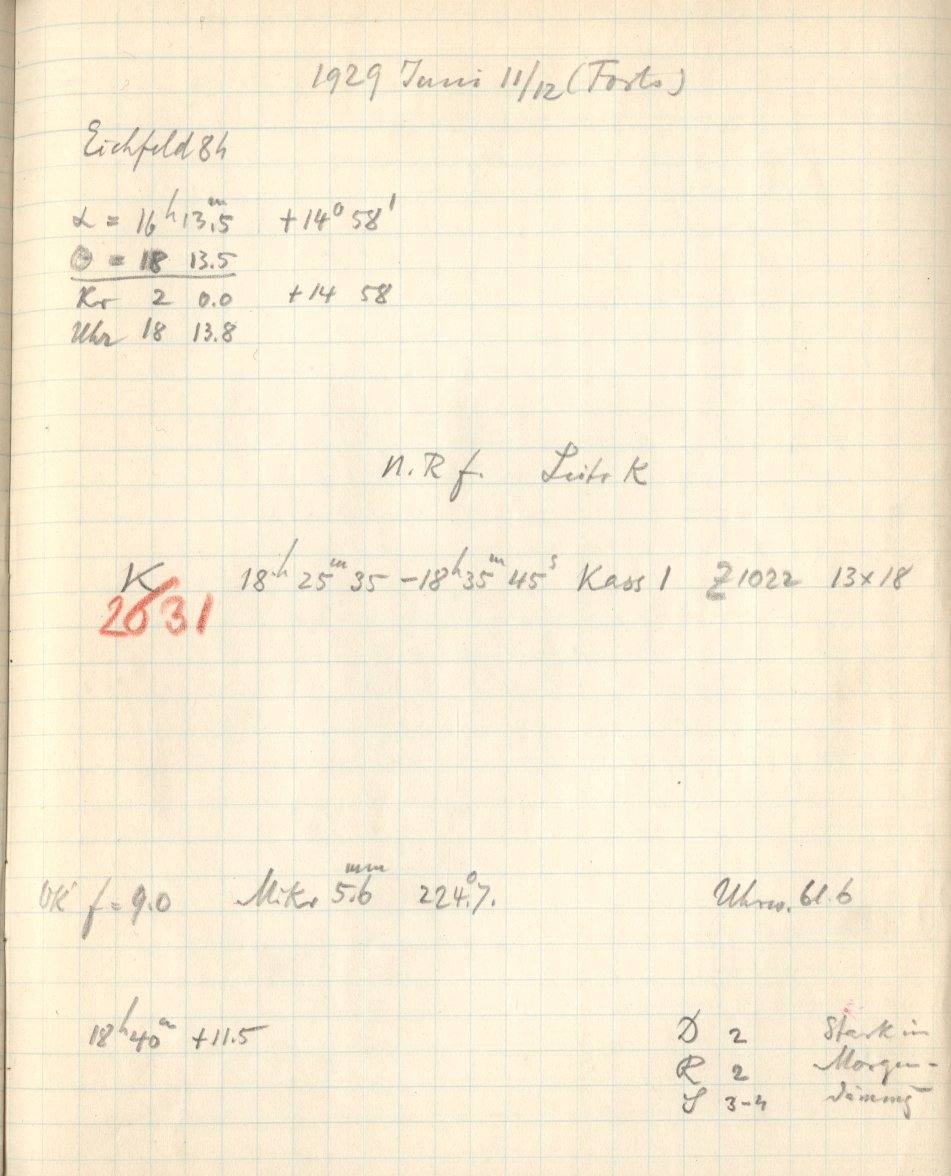 1929 Juni 11/12 (Forts)
Eichfeld 84
α = 16ʰ 13ᵐ.5 +14° 58'
Θ = 18 13.5
Kr 2 0.0 +14 58
Uhr 18 13.8
n. R f. Leitr K
K 18ʰ 25ᵐ 35 – 18ʰ 35ᵐ 45ˢ Kass 1 Z 1022 13×18
2631
OK f = 9.0 Mikr 5.6 mm 224°.7. Uhrw. bl. 6
18ʰ 40ᵐ +11.5
D 2 Stark in
R 2 Morgen-
S 3-4 dämmg